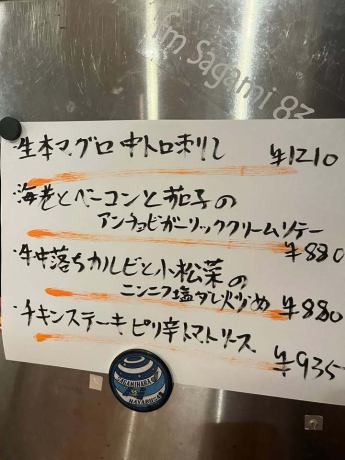 fm Sagami 83
・生本マグロ 中トロ刺し ¥1210
・海老とベーコンと茄子の
アンチョビガーリッククリームソテー
¥880
・牛中落ちカルビと小松菜の
ニンニク塩ダレ炒め ¥880
・チキンステーキ ピリ辛トマトソース
¥935
SAGAMIHARA
HAYABUSA